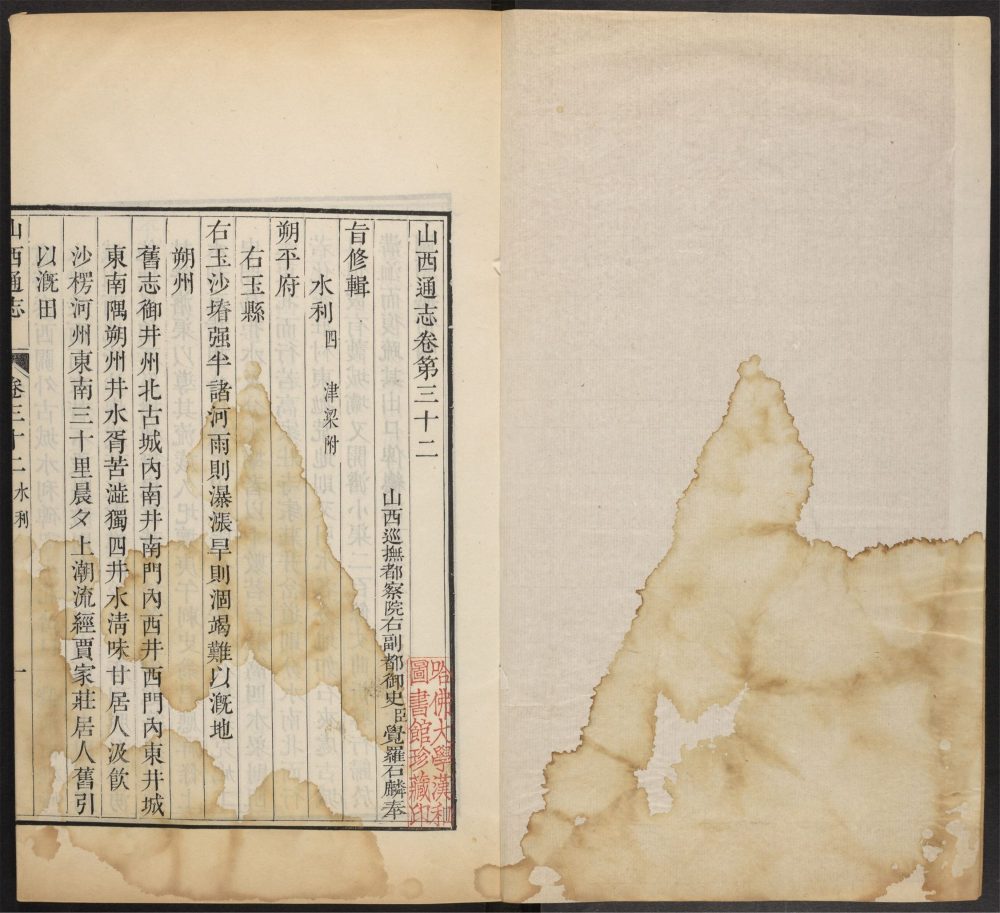 山西通志卷第三十二
山西巡撫都察院右副都御史臣覺羅石麟奉
旨修輯
水利四 津梁附
朔平府
右玉縣
右玉沙堾强半諸河雨則瀑漲旱則涸竭難以漑地
朔州
舊志御井州北古城內南井南門內西井西門內東井城
東南隅朔州井水胥苦澁獨四井水淸味甘居人汲飮
沙楞河州東南三十里晨夕上潮流經賈家莊居人舊引
以漑田
山西通志 卷三十二 水利 一
哈佛大學漢和
圖書館珍藏印